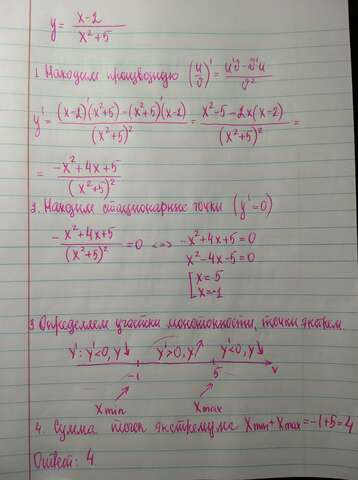 y = (x-2)/(x²+5)
1. Находим производную (u/v)' = (u'v - v'u)/v²
y' = ((x-2)'(x²+5) - (x²+5)'(x-2))/(x²+5)² = (x²-5-2x(x-2))/(x²+5)² =
= (-x²+4x+5)/(x²+5)²
2. Находим стационарные точки (y'=0)
(-x²+4x+5)/(x²+5)² = 0 <=> -x²+4x+5=0
x²-4x-5=0
[x=5
x=-1
3. Определяем участки монотонности, точки экстрем.
y': y'<0, y↘ y'>0, y↗ y'<0, y↘
-1 5 x
x min x max
4. Сумма точек экстремума x min + x max = -1+5=4
Ответ: 4